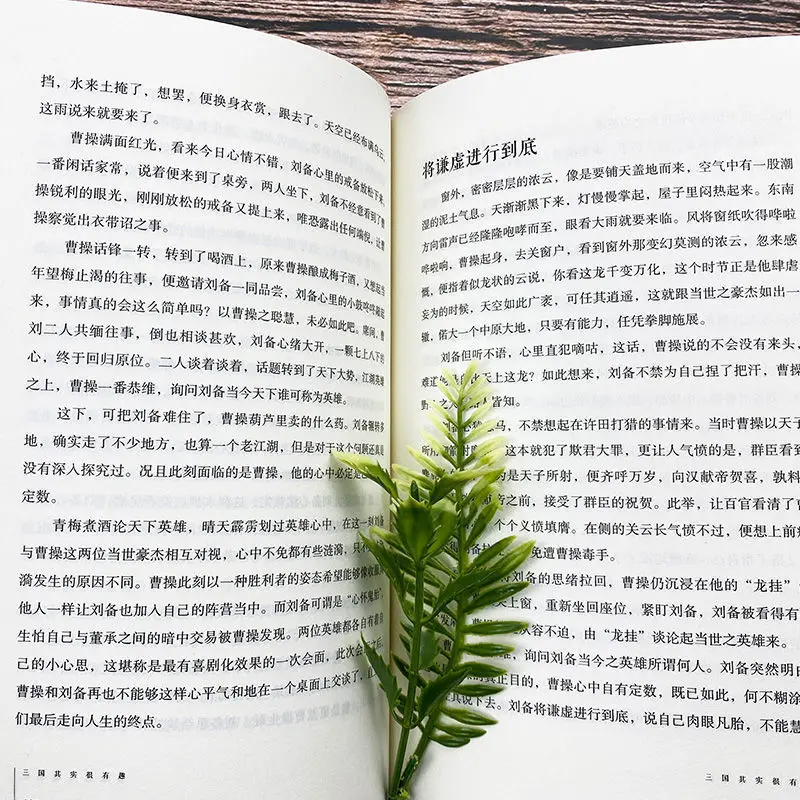 挡，水来土掩了，想罢，便换身衣赏，跟去了。天空已经布满乌云，
这雨说来就要来了。
曹操满面红光，看来今日心情不错，刘备心里的戒备放松下来，
一番闲话家常，说着便来到了桌旁，两人坐下，刘备不经意看到了曹
操锐利的眼光，刚刚放松的戒备又提上来，唯恐露出任何端倪，让曹
操察觉出衣带诏之事。
曹操话锋一转，转到了喝酒上，原来曹操酿成梅子酒，又想起当
年望梅止渴的往事，便邀请刘备一同品尝，刘备心里的小鼓咚咚敲起
来，事情真的会这么简单吗？以曹操之聪慧，未必如此吧。席间，曹
刘二人共缅往事，倒也相谈甚欢，刘备心绪大开，一颗七上八下的
心，终于回归原位。二人谈着谈着，话题转到了天下大势，江湖英雄
之上，曹操一番恭维，询问刘备当今天下谁可称为英雄。
这下，可把刘备难住了，曹操葫芦里卖的什么药。刘备辗转多
地，确实走了不少地方，也算一个老江湖，但是对于这个问题还真
没有深入探究过。况且此刻面临的是曹操，他的心中必定是
定数。
青梅煮酒论天下英雄，晴天霹雳划过英雄心中，在这一刻刘备
与曹操这两位当世豪杰相互对视，心中不免都有些涟漪，只
漪发生的原因不同。曹操此刻以一种胜利者的姿态希望能够像收服
他人一样让刘备也加入自己的阵营当中。而刘备可谓是“心怀鬼胎”，
生怕自己与董承之间的暗中交易被曹操发现。两位英雄都各自有着自
己的小心思，这堪称是最有喜剧化效果的一次会面，此次会面之后，
曹操和刘备再也不能够这样心平气和地在一个桌面上交谈了，直
们最后走向人生的终点。
三国其实很有趣
将谦虚进行到底
窗外，密密层层的浓云，像是要铺天盖地而来，空气中有一股潮
湿的泥土气息。天渐渐黑下来，灯慢慢掌起，屋子里闷热起来。东南
方向雷声已经隆隆咆哮而至，眼看大雨就要来临。风将窗纸吹得哗啦
哗啦响，曹操起身，去关窗户，看到窗外那变幻莫测的浓云，忽来感
慨，便指着似龙状的云说，你看这龙千变万化，这个时节正是他肆虐
妄为的时候，天空如此广袤，可任其逍遥，这就跟当世之豪杰如出一
辙，偌大一个中原大地，只要有能力，任凭拳脚施展。
刘备但听不语，心里直犯嘀咕，这话，曹操说的不会没有来头，
难道他是比天上这龙？如此想来，刘备不禁为自己捏了把汗，曹操
野 之人 皆知。
所 心 马，不禁想起在许田打猎的事情来。当时曹操以天子
，这本就犯了欺君大罪，更让人气愤的是，群臣看到
为是天子所射，便齐呼万岁，向汉献帝贺喜，孰料
帝之前，接受了群臣的祝贺。此举，让百官看清了曹
个个义愤填膺。在侧的关云长气愤不过，便想上前
免遭曹操毒手。
将刘备的思绪拉回，曹操仍沉浸在他的“龙挂”
关上窗，重新坐回座位，紧盯刘备，刘备被看得有
从容不迫，由“龙挂”谈论起当世之英雄来。
，询问刘备当今之英雄所谓何人。刘备突然明
真正目的，曹操心中自有定数，既已如此，何不糊涂
其说下去。刘备将谦虚进行到底，说自己肉眼凡胎，不能慧
三国其实很有